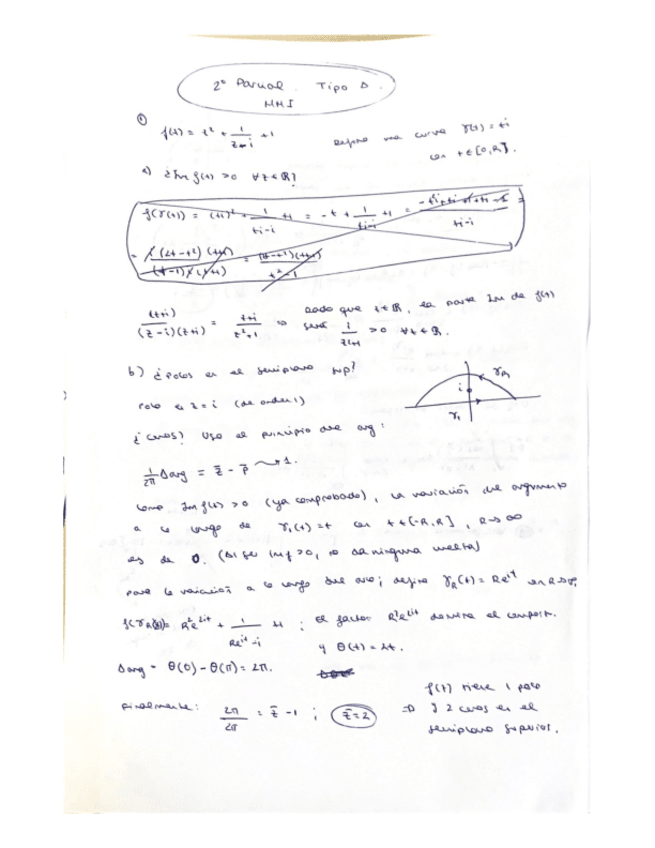 2º Parcial. Tipo D.
MMI
①
f(z) = z² + 1/(z-i) + 1 defino una curva γ(t) = ti
con t ∈ [0,R].
a) ¿Im f(z) > 0 ∀z ∈ ℝ?
f(γ(t)) = (ti)² + 1/(ti-i) + 1 = -t + 1/(ti-i) + 1 =
(z+i)/((z-i)(z+i)) = (z+i)/(z²+1) ⇒ dado que z ∈ ℝ, la parte Im de f(z)
será i/(z²+1) > 0 ∀z ∈ ℝ.
b) ¿Polos en el semiplano sup?
Polo en z = i (de orden 1)
¿Ceros? Uso el principio del arg:
i
γ_R
γ₁
1/2π Δarg = Z̄ - P̄ → 1.
Como Im f(z) > 0 (ya comprobado), la variación del argumento
a lo largo de γ₁(t) = t con t ∈ [-R,R], R → ∞
es de 0. (Al ser Im f > 0, no da ninguna vuelta)
Para la variación a lo largo del arco; defino γ_R(t) = Re^{it} con R → ∞,
f(γ_R(t)) = R²e^{2it} + 1/(Re^{it} - i) + 1 ; El factor R²e^{2it} domina el comport.
y θ(t) = 2t.
Δarg = θ(0) - θ(π) = 2π.
Finalmente: 2π/2π = Z̄ - 1 ; Z̄ = 2 ⇒ f(z) tiene 1 polo
y 2 ceros en el
semiplano superior.